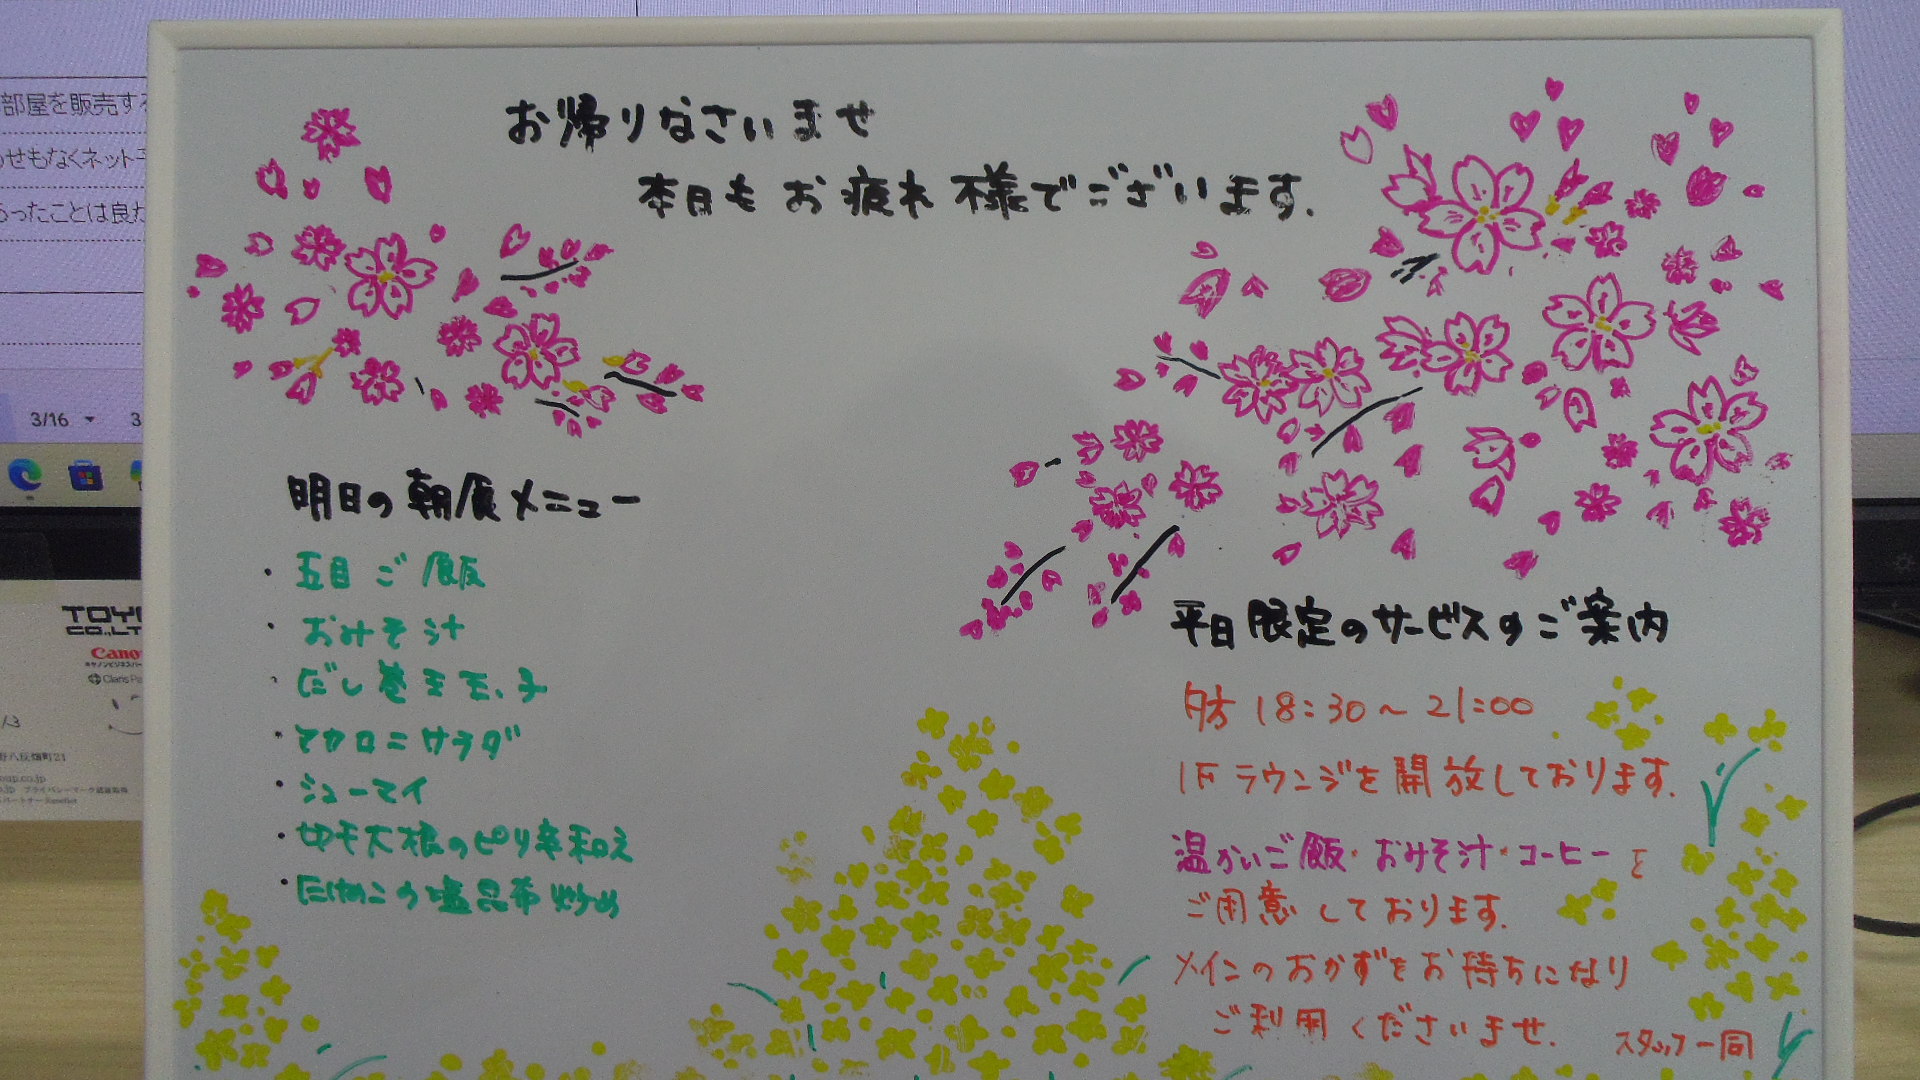 お帰りなさいませ
本日もお疲れ様でございます.
明日の朝食メニュー
・五目ご飯
・おみそ汁
・だし巻き玉子
・マカロニサラダ
・シューマイ
・切干大根のピリ辛和え
・たけのこの塩昆布炒め
平日限定のサービスのご案内
夕方 18:30～21:00
1Fラウンジを開放しております.
温かいご飯・おみそ汁・コーヒーを
ご用意しております.
メインのおかずをお持ちになり
ご利用くださいませ.
スタッフ一同
部屋を販売する
せもなくネット
ったことは良か
3/16
3
TOY
CO.,LT
Canon
Claris